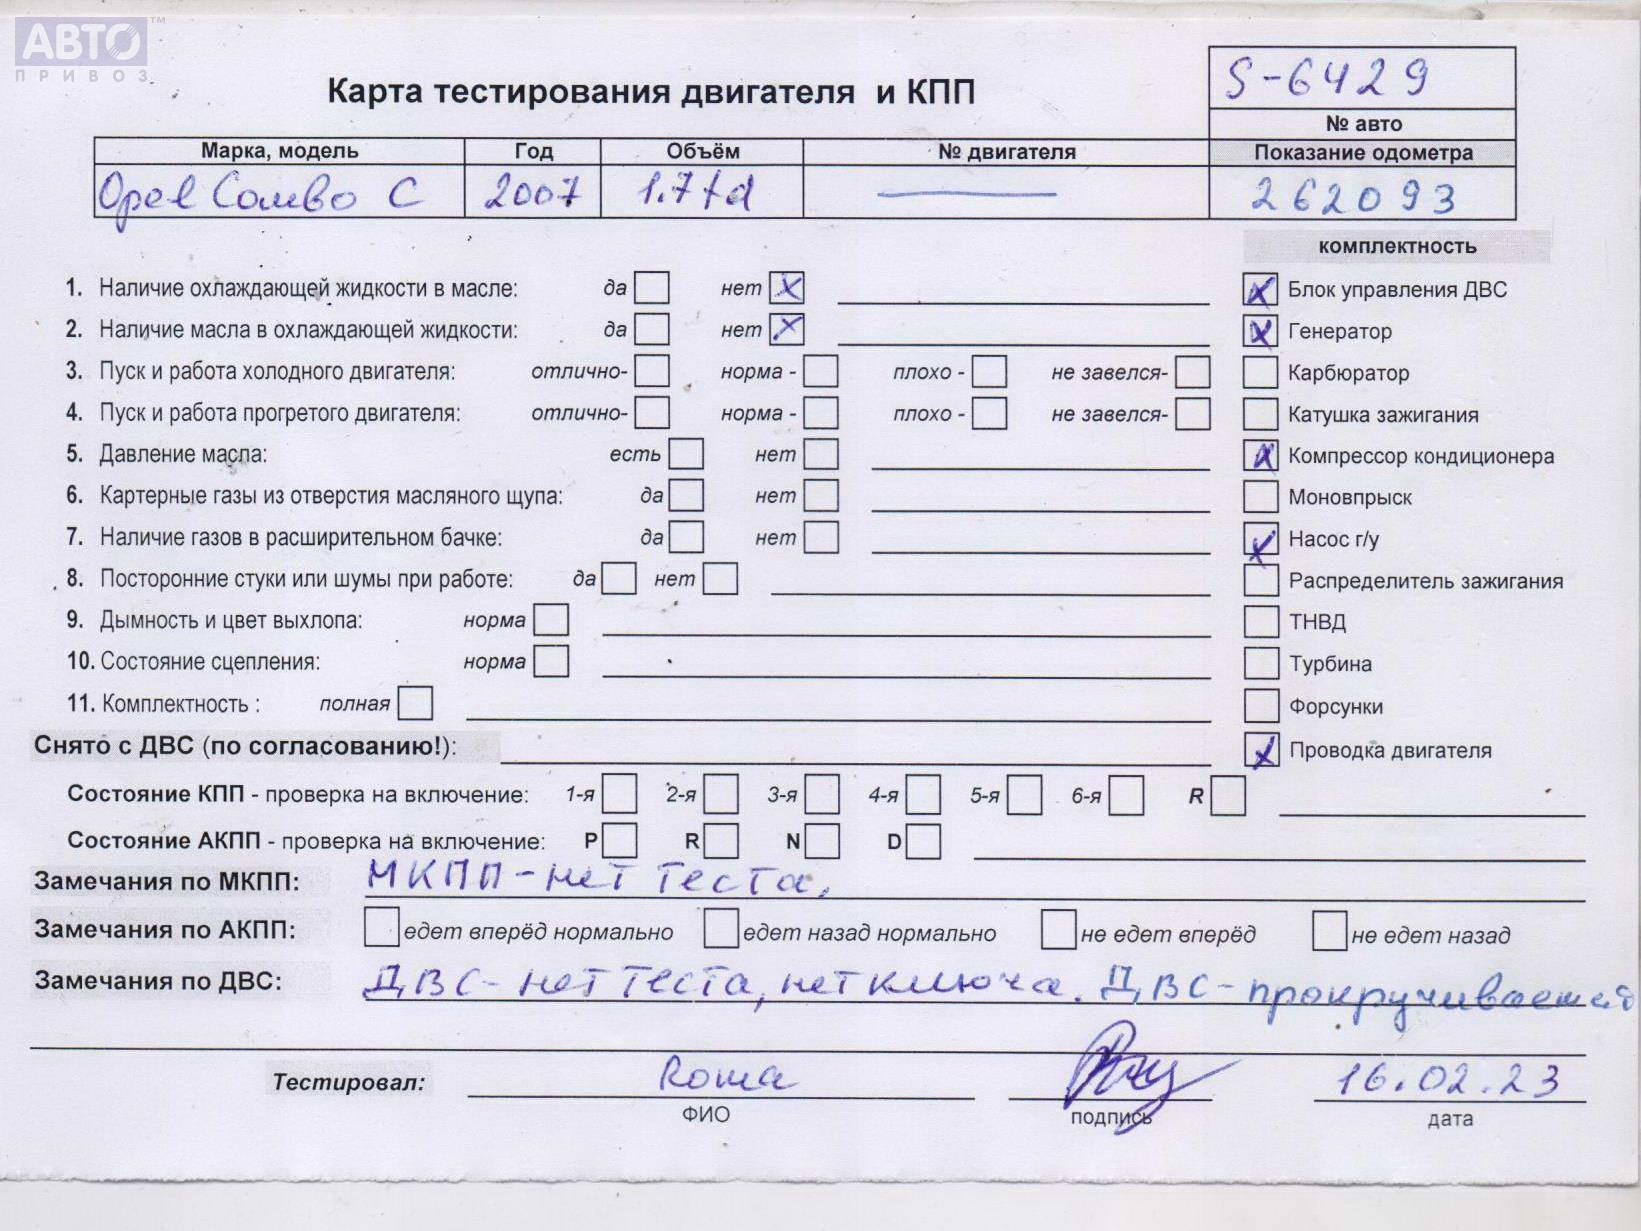 АВТО™
ПРИВОЗ
S-6429
Карта тестирования двигателя и КПП
№ авто
Марка, модель Год Объём № двигателя Показание одометра
Opel Combo C 2007 1.7td — 262093
комплектность
1. Наличие охлаждающей жидкости в масле: да нет x x Блок управления ДВС
2. Наличие масла в охлаждающей жидкости: да нет x x Генератор
3. Пуск и работа холодного двигателя: отлично- норма - плохо - не завелся- Карбюратор
4. Пуск и работа прогретого двигателя: отлично- норма - плохо - не завелся- Катушка зажигания
5. Давление масла: есть нет x Компрессор кондиционера
6. Картерные газы из отверстия масляного щупа: да нет Моновпрыск
7. Наличие газов в расширительном бачке: да нет x Насос г/у
8. Посторонние стуки или шумы при работе: да нет Распределитель зажигания
9. Дымность и цвет выхлопа: норма ТНВД
10. Состояние сцепления: норма Турбина
11. Комплектность : полная Форсунки
Снято с ДВС (по согласованию!): x Проводка двигателя
Состояние КПП - проверка на включение: 1-я 2-я 3-я 4-я 5-я 6-я R
Состояние АКПП - проверка на включение: P R N D
Замечания по МКПП: МКПП-нет теста.
Замечания по АКПП: едет вперёд нормально едет назад нормально не едет вперёд не едет назад
Замечания по ДВС: ДВС-нет теста, нет ключа. ДВС-прокручивается
Тестировал: Roma 16.02.23
ФИО подпись дата